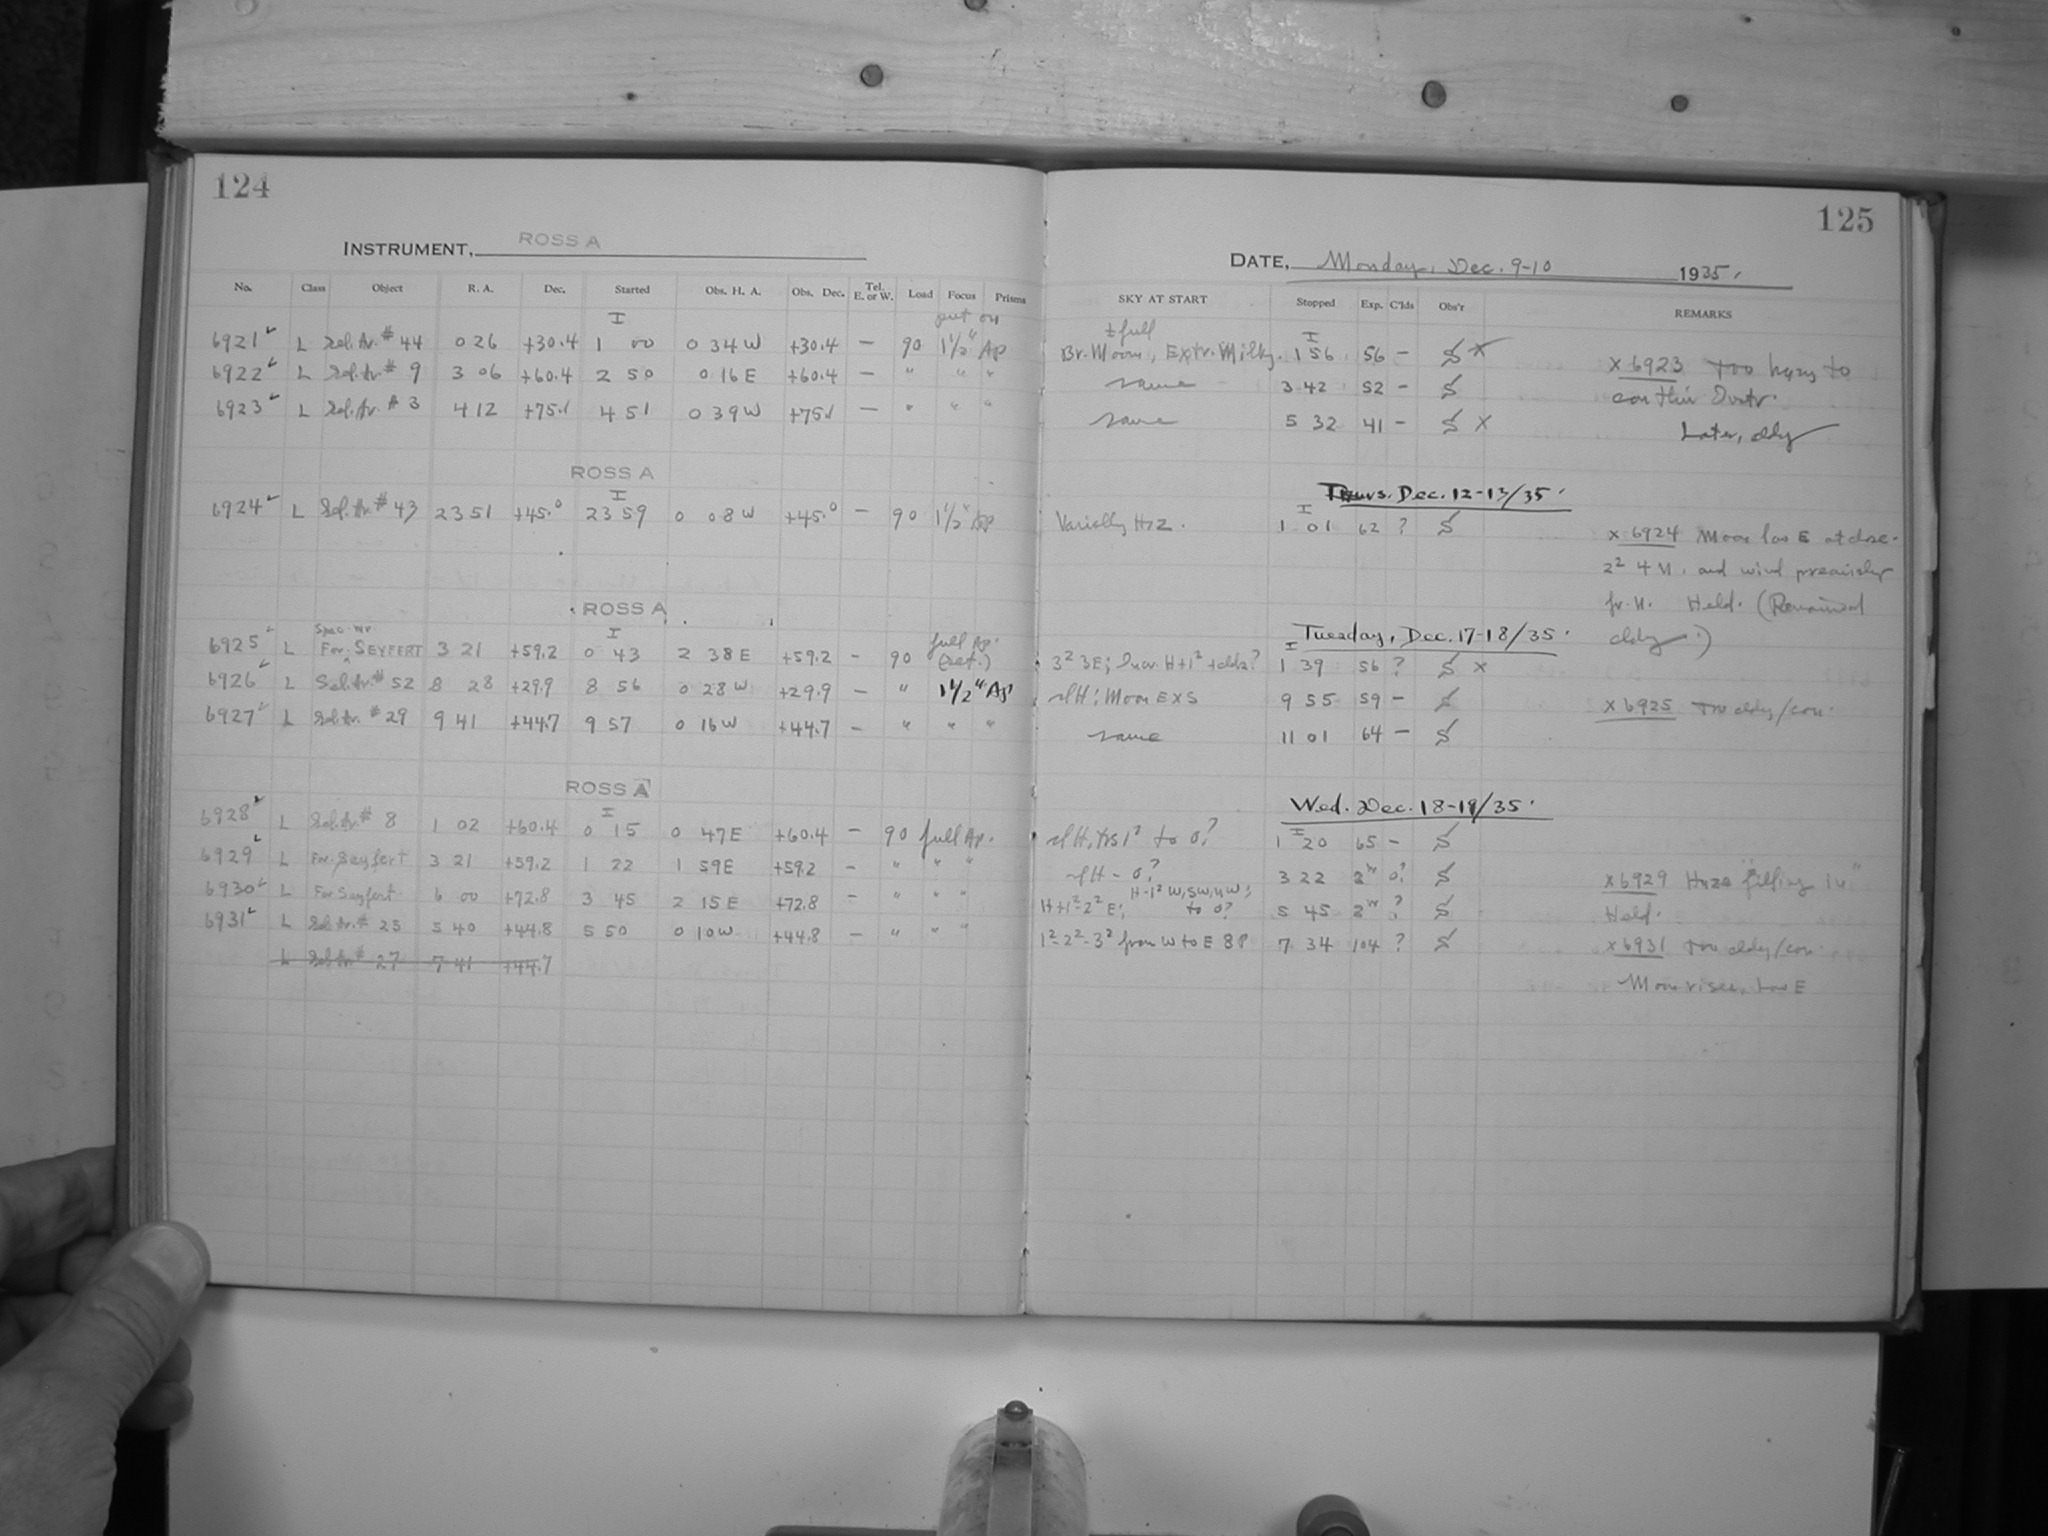 124
INSTRUMENT, ROSS A
No. Class Object R. A. Dec. Started Obs. H. A. Obs. Dec. Tel. E. or W. Load Focus Prisms
I put on
6921 L Sel. Ar. # 44 0 26 +30.4 1 00 0 34 W +30.4 — 90 1 1/2" Ap
6922 L Sel. Ar. # 9 3 06 +60.4 2 50 0 16 E +60.4 — " " "
6923 L Sel. Ar. # 3 4 12 +75.1 4 51 0 39 W +75.1 — " " "
ROSS A
I
6924 L Sel. Ar. # 43 23 51 +45.0 23 59 0 08 W +45.0 — 90 1 1/2" Ap
ROSS A
I full Ap.
6925 L For SEYFERT 3 21 +59.2 0 43 2 38 E +59.2 — 90
6926 L Sel. Ar. # 52 8 28 +29.9 8 56 0 28 W +29.9 — " 1 1/2" Ap
6927 L Sel. Ar. # 29 9 41 +44.7 9 57 0 16 W +44.7 — " " "
ROSS A
I
6928 L Sel. Ar. # 8 1 02 +60.4 0 15 0 47 E +60.4 — 90 full Ap.
6929 L For Seyfert 3 21 +59.2 1 22 1 59 E +59.2 — " " "
6930 L For Seyfert 6 00 +72.8 3 45 2 15 E +72.8 — " " "
6931 L Sel. Ar. # 25 5 40 +44.8 5 50 0 10 W +44.8 — " " "
L Sel Ar # 27 7 41 +44.7
125
DATE, Monday, Dec. 9-10 1935.
SKY AT START Stopped Exp. C'lds Obs'r REMARKS
± full I
Br. Moon, Extr. Milky. 1 56 56 — S x
same 3 42 52 — S
same 5 32 41 — S x
x 6923 Too hazy to
con this Instr.
Later, cldy
Thurs. Dec. 12-13/35.
I
Variably Hz. 1 01 62 ? S
x 6924 Moon low E at close.
and wind
fr. N. Held. (Remained
cldy.)
Tuesday, Dec. 17-18/35.
I
1 39 56 ? S x
slH; Moon EXS 9 55 59 — S
same 11 01 64 — S
x 6925 Too cldy/con.
Wed. Dec. 18-19/35.
I
to 0? 1 20 65 — S
slH - 0? 3 22 S
H-1² W, SW, NW;
H+1²-2² E; to 0? 5 45 ? S
1²-2²-3² from W to E 8P 7 34 104 ? S
x 6929 Haze "filling in"
Held.
x 6931 Too cldy/con.
Moon rises, low E